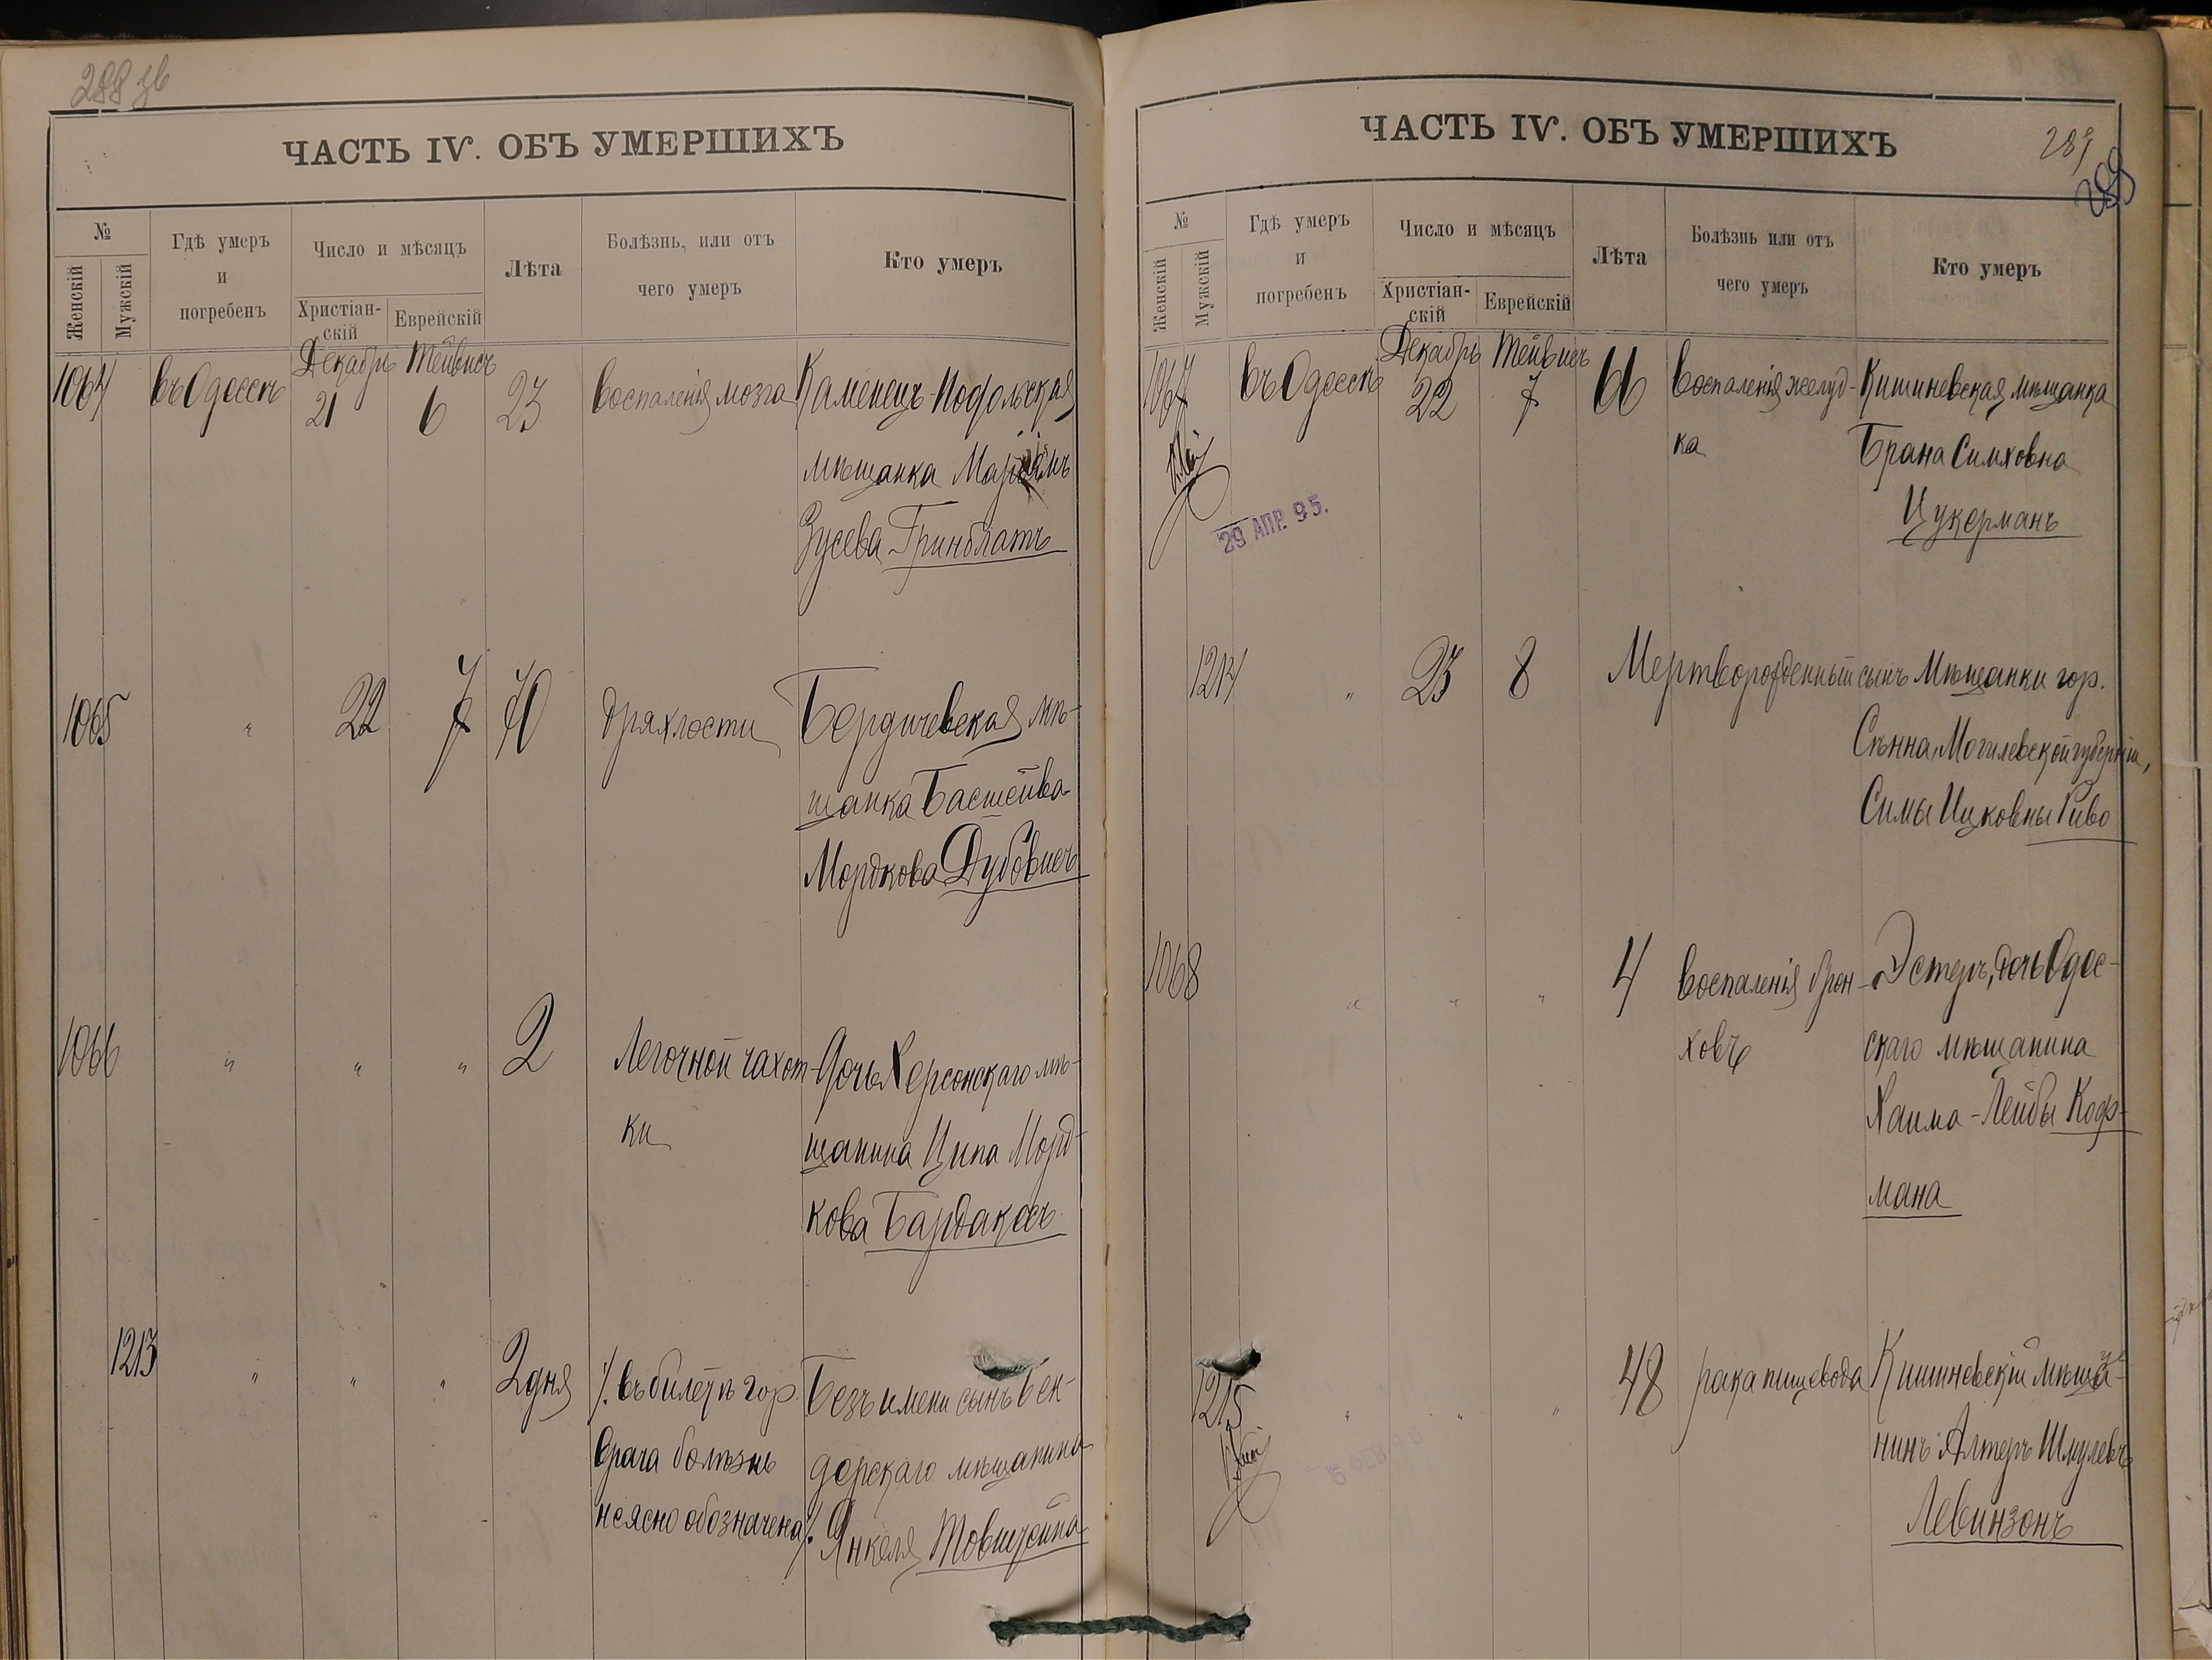 288 зв
ЧАСТЬ IV. ОБЪ УМЕРШИХЪ
№
Женскій
Мужскій
Гдѣ умеръ
и
погребенъ
Число и мѣсяцъ
Христіан-
скій
Еврейскій
Лѣта
Болѣзнь, или отъ
чего умеръ
Кто умеръ
Декабрь Тейвисъ
1064 въ Одессѣ 21 6 23 воспаленія мозга Каменецъ-Подольская
мѣщанка Марьямъ
Зусева Гринблатъ
1065 " 22 7 70 дряхлости Бердичевская мѣ-
щанка Басшейва
Мордкова Дубовисъ
1066 " " " 2 Легочной чахот- Дочь Херсонскаго мѣ-
ки щанина Ципа Морд-
кова Бардакесъ
1213 " " " 2 дня /. въ билетѣ гор. Безъ имени сынъ Бен-
врача болѣзнь дерскаго мѣщанина
неясно обозначена/. Янкеля Товштейна
ЧАСТЬ IV. ОБЪ УМЕРШИХЪ
289
289
№
Женскій
Мужскій
Гдѣ умеръ
и
погребенъ
Число и мѣсяцъ
Христіан-
скій
Еврейскій
Лѣта
Болѣзнь или отъ
чего умеръ
Кто умеръ
Декабрь Тейвисъ
1067 въ Одессѣ 22 7 66 воспаленія желуд- Кишиневская мѣщанка
ка Брана Симховна
Цукерманъ
29 АПР. 95.
1214 " 23 8 Мертворожденный сынъ Мѣщанки гор.
Сѣнна, Могилевской губерніи,
Симы Ицковны Риво
1068 " " " 4 воспаленія брон- Эстеръ, дочь Одес-
ховъ скаго мѣщанина
Хаима-Лейбы Коф-
мана
1215 " " " 48 рака пищевода Кишиневскій мѣща-
нинъ Алтеръ Шмулевъ
Левинзонъ